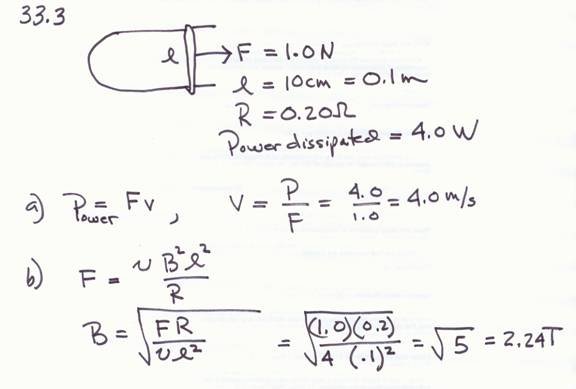 33.3
l → F = 1.0 N
l = 10cm = 0.1m
R = 0.20Ω
Power dissipated = 4.0 W
a) P = Fv , V = P/F = 4.0/1.0 = 4.0 m/s
Power
b) F = v B²l²/R
B = √(FR/vl²) = √((1.0)(0.2)/4 (.1)²) = √5 = 2.24T